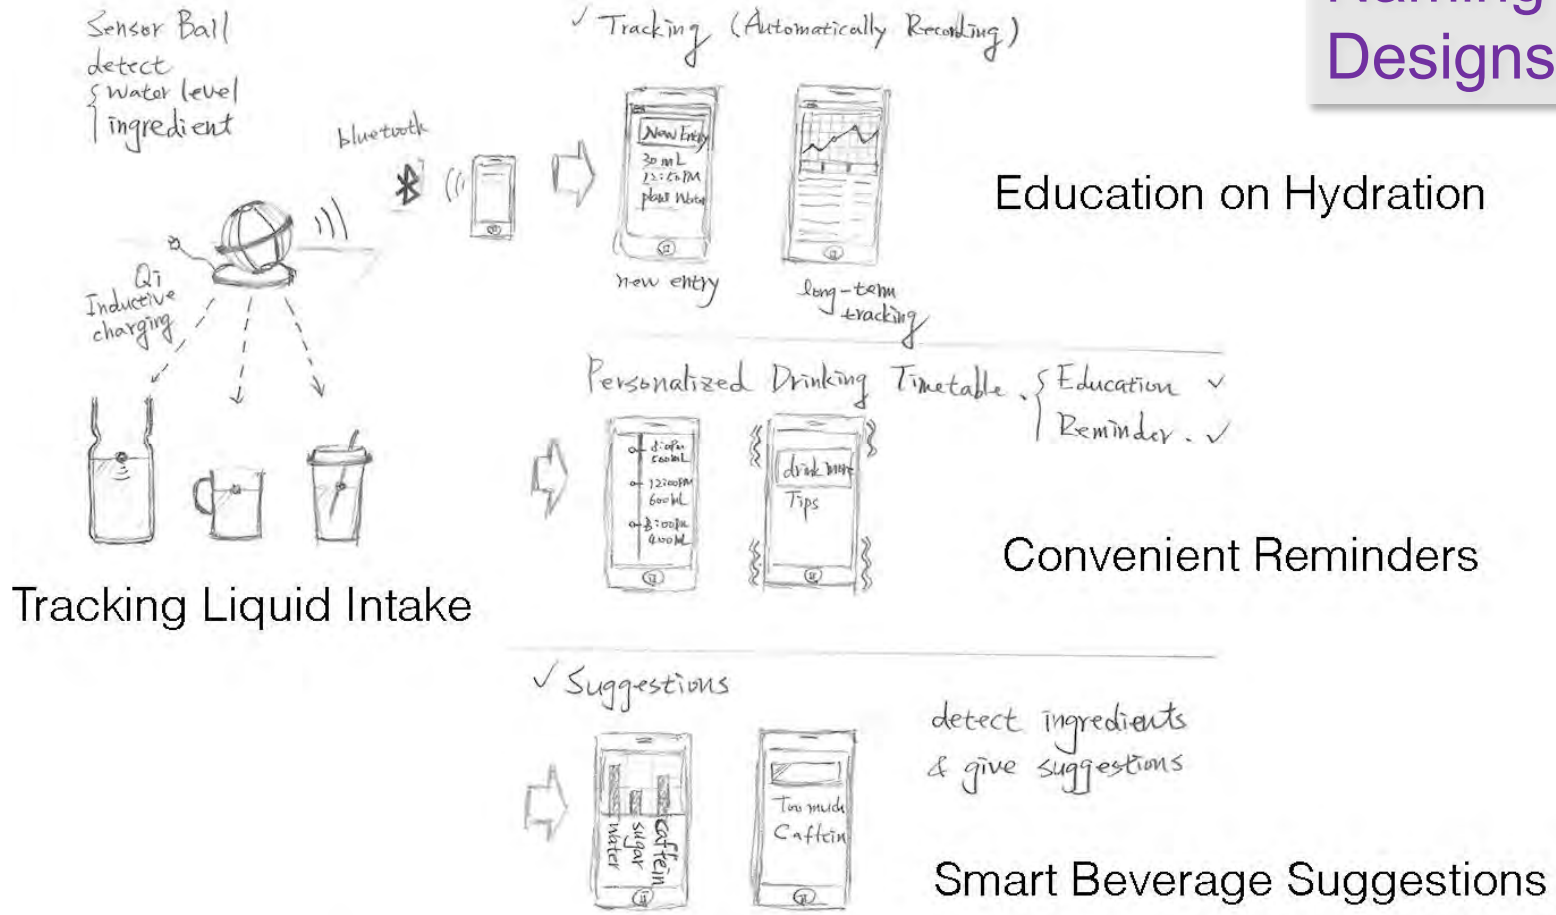 Naming
Designs
Sensor Ball
detect
water level
ingredient
bluetooth
Qi
Inductive
charging
Tracking Liquid Intake
✓ Tracking (Automatically Recording)
New Entry
30 mL
12:50PM
plain Water
new entry
long-term
tracking
Education on Hydration
Personalized Drinking Timetable.
Education ✓
Reminder. ✓
500mL
12:00PM
600mL
400mL
drink more
Tips
Convenient Reminders
✓ Suggestions
water
sugar
caffein
Too much
Caffein
detect ingredients
& give suggestions
Smart Beverage Suggestions